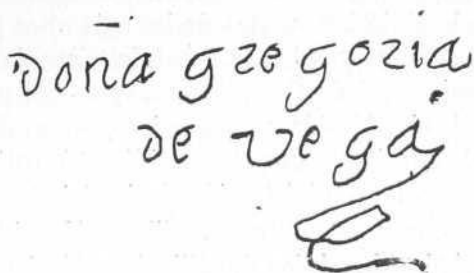 doña gregoria
de vega